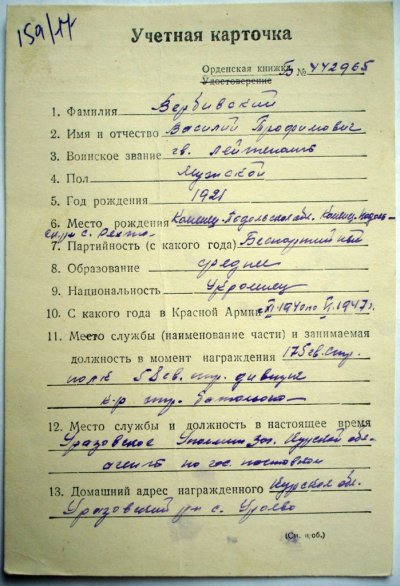 159/14
Учетная карточка
Орденская книжка Б № 442965
Удостоверение
1. Фамилия Вербивский
2. Имя и отчество Василий Трофимович
3. Воинское звание гв. лейтенант
4. Пол Мужской
5. Год рождения 1921
6. Место рождения Каменец-Подольская обл. Каменец-Подоль-
с.
7. Партийность (с какого года) Беспартийный
8. Образование среднее
9. Национальность Украинец
10. С какого года в Красной Армии с XI.1940 по VI.1947 г.
11. Место службы (наименование части) и занимаемая
должность в момент награждения 175 гв. стр.
полк 58 гв. стр. дивизии
к-р стр. батальона
12. Место службы и должность в настоящее время
Уразовское Курской обл-
агент по гос. поставкам
13. Домашний адрес награжденного Курская обл.
Уразовский р-н с.
(См. н об.)